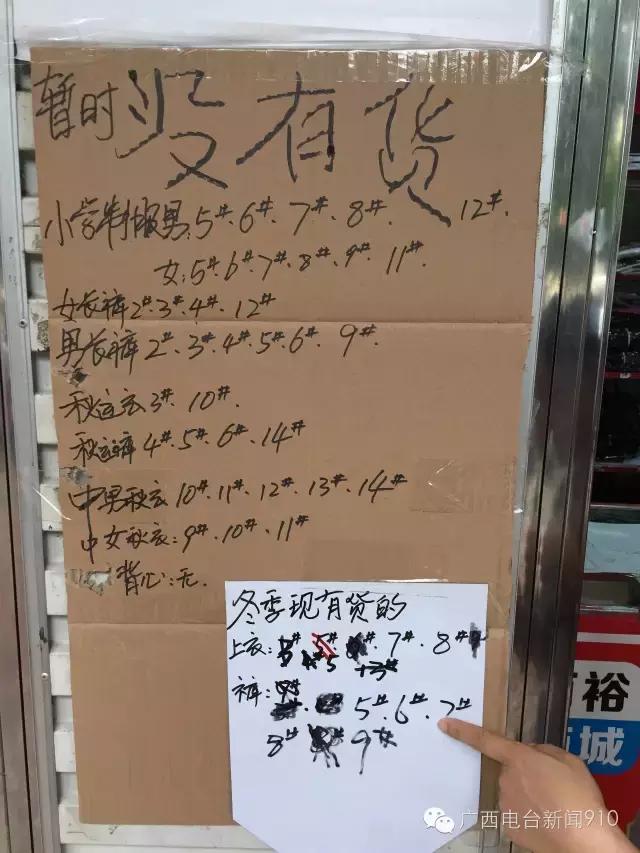 暂时没有货
小学制服男:5#、6#、7#、8#、12#、
女:5#、6#、7#、8#、9#、11#、
女长裤2#、3#、4#、12#
男长裤2#、3#、4#、5#、6#、9#、
秋运衣3#、10#、
秋运裤4#、5#、6#、14#
中男秋衣10#、11#、12#、13#、14#
中女秋衣:9#、10#、11#
背心:无.
冬季现有货的
上衣:7#、8#
裤:5#、6#、7#
8#、9#
裕
城
广西电台新闻910